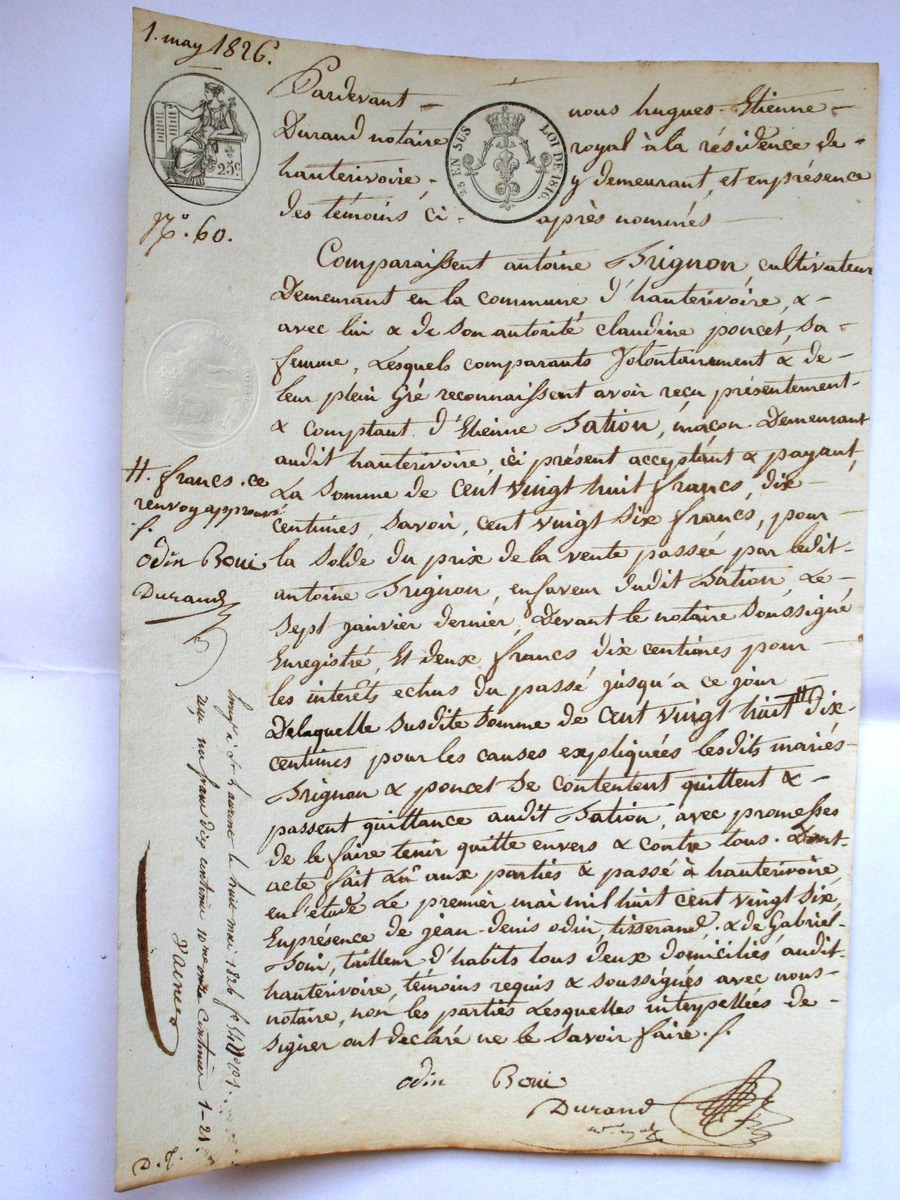 1. may 1826.
25c
25 EN SUS
LOI DE 1816.
N.º 60.
Pardevant nous hugues Etienne
Durand notaire royal à la résidence de
hauterivoire y demeurant, et en présence
des témoins ci-après nommés
Comparaissent antoine Grignon, cultivateur
Demeurant en la commune d'hauterivoire, &
avec lui & de son autorité claudine poncet, sa
femme, Lesquels comparants Volontairement & de
leur plein Gré reconnaissent avoir reçu présentement
& comptant d'Etienne Sation, maçon Demeurant
audit hauterivoire, ici présent acceptant & payant,
La Somme de Cent vingt huit francs, dix
Centimes, Savoir, cent vingt six francs, pour
la Solde du prix de la vente passée par ledit
antoine Grignon, enfaveur dudit Sation, Le
Sept janvier dernier, Devant le notaire Soussigné
Enregistré, Et deux francs dix centimes pour
les interêts echus du passé jusqu'a ce jour
Delaquelle Susdite Somme de Cent vingt huit # dix
centimes pour les causes expliquées lesdits mariés
Grignon & poncet Se Contentent quittent &
passent quittance audit Sation, avec promesses
de le faire tenir quitte envers & contre tous. Dont
acte fait Lû aux parties & passé à hauterivoire,
en l'étude Le premier mai mil huit cent vingt Six,
Enprésence de jean Denis odin, tisserand, & de Gabriel
Boui, tailleur d'habits tous deux domiciliés audit
hauterivoire, témoins requis & soussignés avec nous
notaire, non les parties Lesquelles interpellées de
Signer ont declaré ne le Savoir faire.
odin Boui
Durand
#. francs. ce
renvoy approuvé
odin Boui
Durand
le huit mai 1826
un franc dix centimes 10me onze Centimes 1-21
D. J.